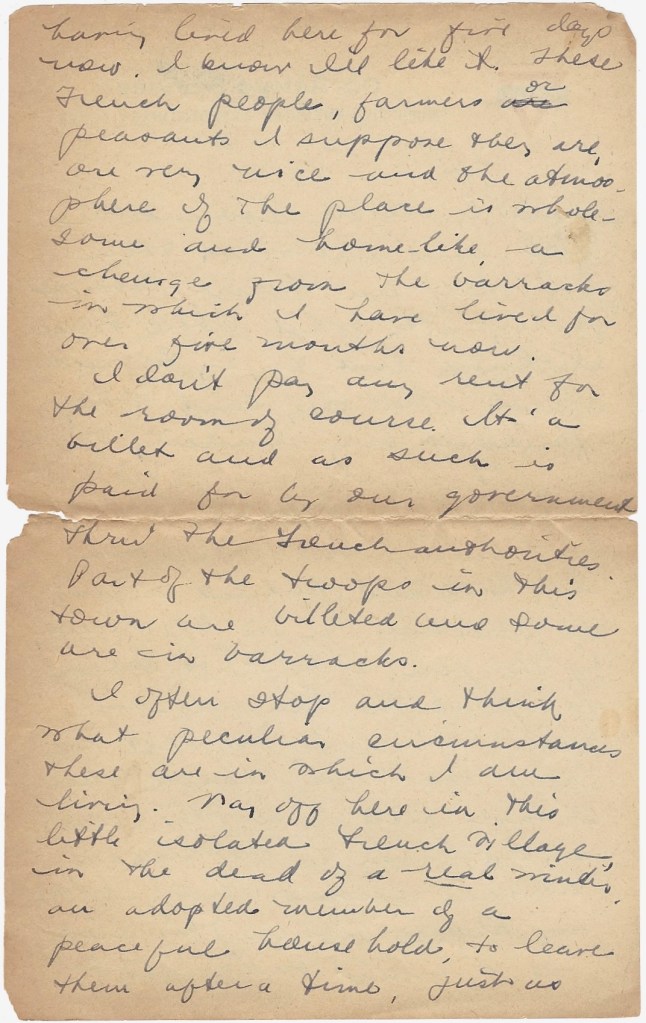 having lived here for five days
now. I know I'll like it. These
French people, farmers are or
peasants I suppose they are,
are very nice and the atmos-
phere of the place is whole-
some and home-like, a
change from the barracks
in which I have lived for
over five months now.
I don't pay any rent for
the room of course. It' a
billet and as such is
paid for by our government
thru' the French authorities.
Part of the troops in this
town are billeted and some
are in barracks.
I often stop and think
what peculiar circumstances
these are in which I am
living. Way off here in this
little isolated French village,
in the dead of a real winter,
an adopted member of a
peaceful household, to leave
them after a time, just as